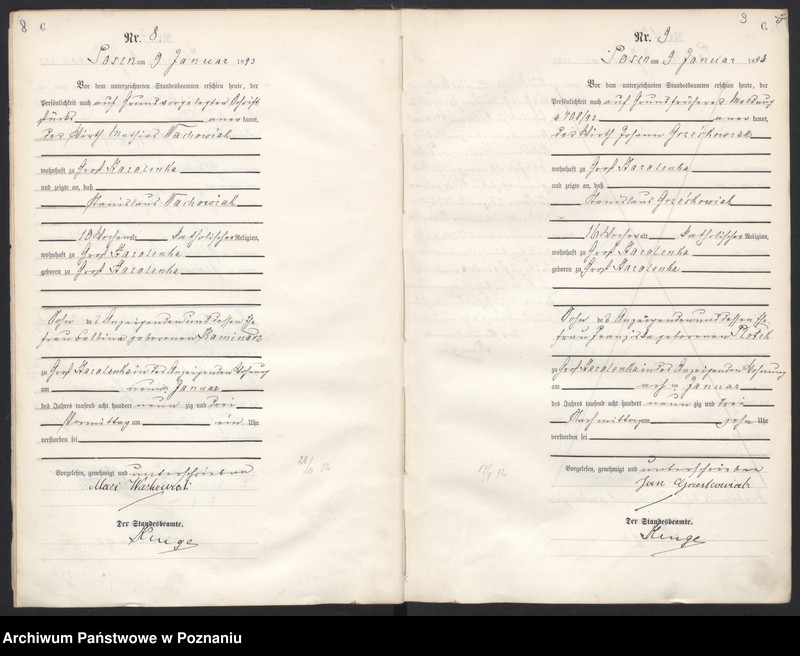 8 C.
Nr. 8
Posen am 9 Januar 1893
Vor dem unterzeichneten Standesbeamten erschien heute, der
Persönlichkeit nach auf Grund vorgelegter Schrift
stücke anerkannt,
der Wirth Mathias Wachowiak
wohnhaft zu Groß Staralenka
und zeigte an, daß
Stanislaus Wachowiak
18 Wochen alt, katholischer Religion,
wohnhaft zu Groß Staralenka
geboren zu Groß Staralenka
Sohn des Anzeigenden und dessen Ehe
frau Balbina geborenen Kaminarz
zu Groß Staralenka in des Anzeigenden Wohnung
am neunten Januar
des Jahres tausend acht hundert neunzig und drei
Vormittag um ein Uhr
verstorben sei
Vorgelesen, genehmigt und unterschrieben
Der Standesbeamte.
9
C.
Nr. 9
Posen am 9 Januar 1893
Vor dem unterzeichneten Standesbeamten erschien heute, der
Persönlichkeit nach auf Grund früherer Meldung
a 408/92 anerkannt,
der Wirth Johann Grześkowiak
wohnhaft zu Groß Staralenka
und zeigte an, daß
Stanislaus Grześkowiak
16 Wochen alt, katholischer Religion,
wohnhaft zu Groß Staralenka
geboren zu Groß Staralenka
Sohn des Anzeigenden und dessen Ehe
frau Franziska geborenen
zu Groß Staralenka in des Anzeigenden Wohnung
am achten Januar
des Jahres tausend acht hundert neunzig und drei
Nachmittag um zehn Uhr
verstorben sei
Vorgelesen, genehmigt und unterschrieben
Jan Grześkowiak
Der Standesbeamte.
Archiwum Państwowe w Poznaniu